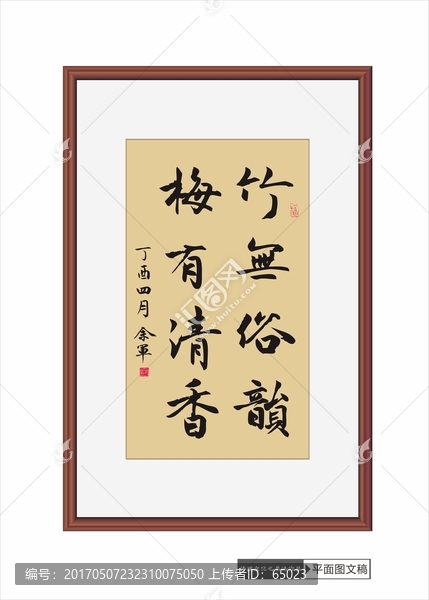 竹無俗韻
梅有清香
丁酉四月 余軍
编号：20170507232310075050 上传者ID：65023
平面图文稿